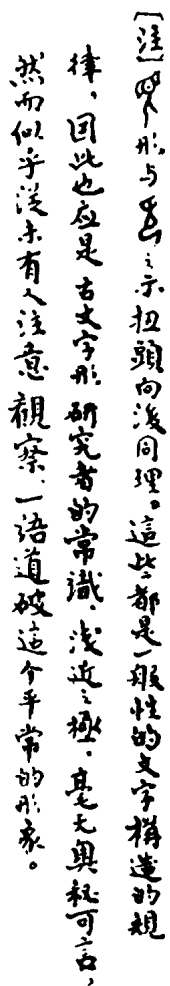 [注]形与之示扭頭向後同理。這些都是一般性的文字構造的規
律，因此也应是古文字形研究者的常識，淺近之極，毫无奥秘可言，
然而似乎從未有人注意觀察、一語道破這个平常的形象。